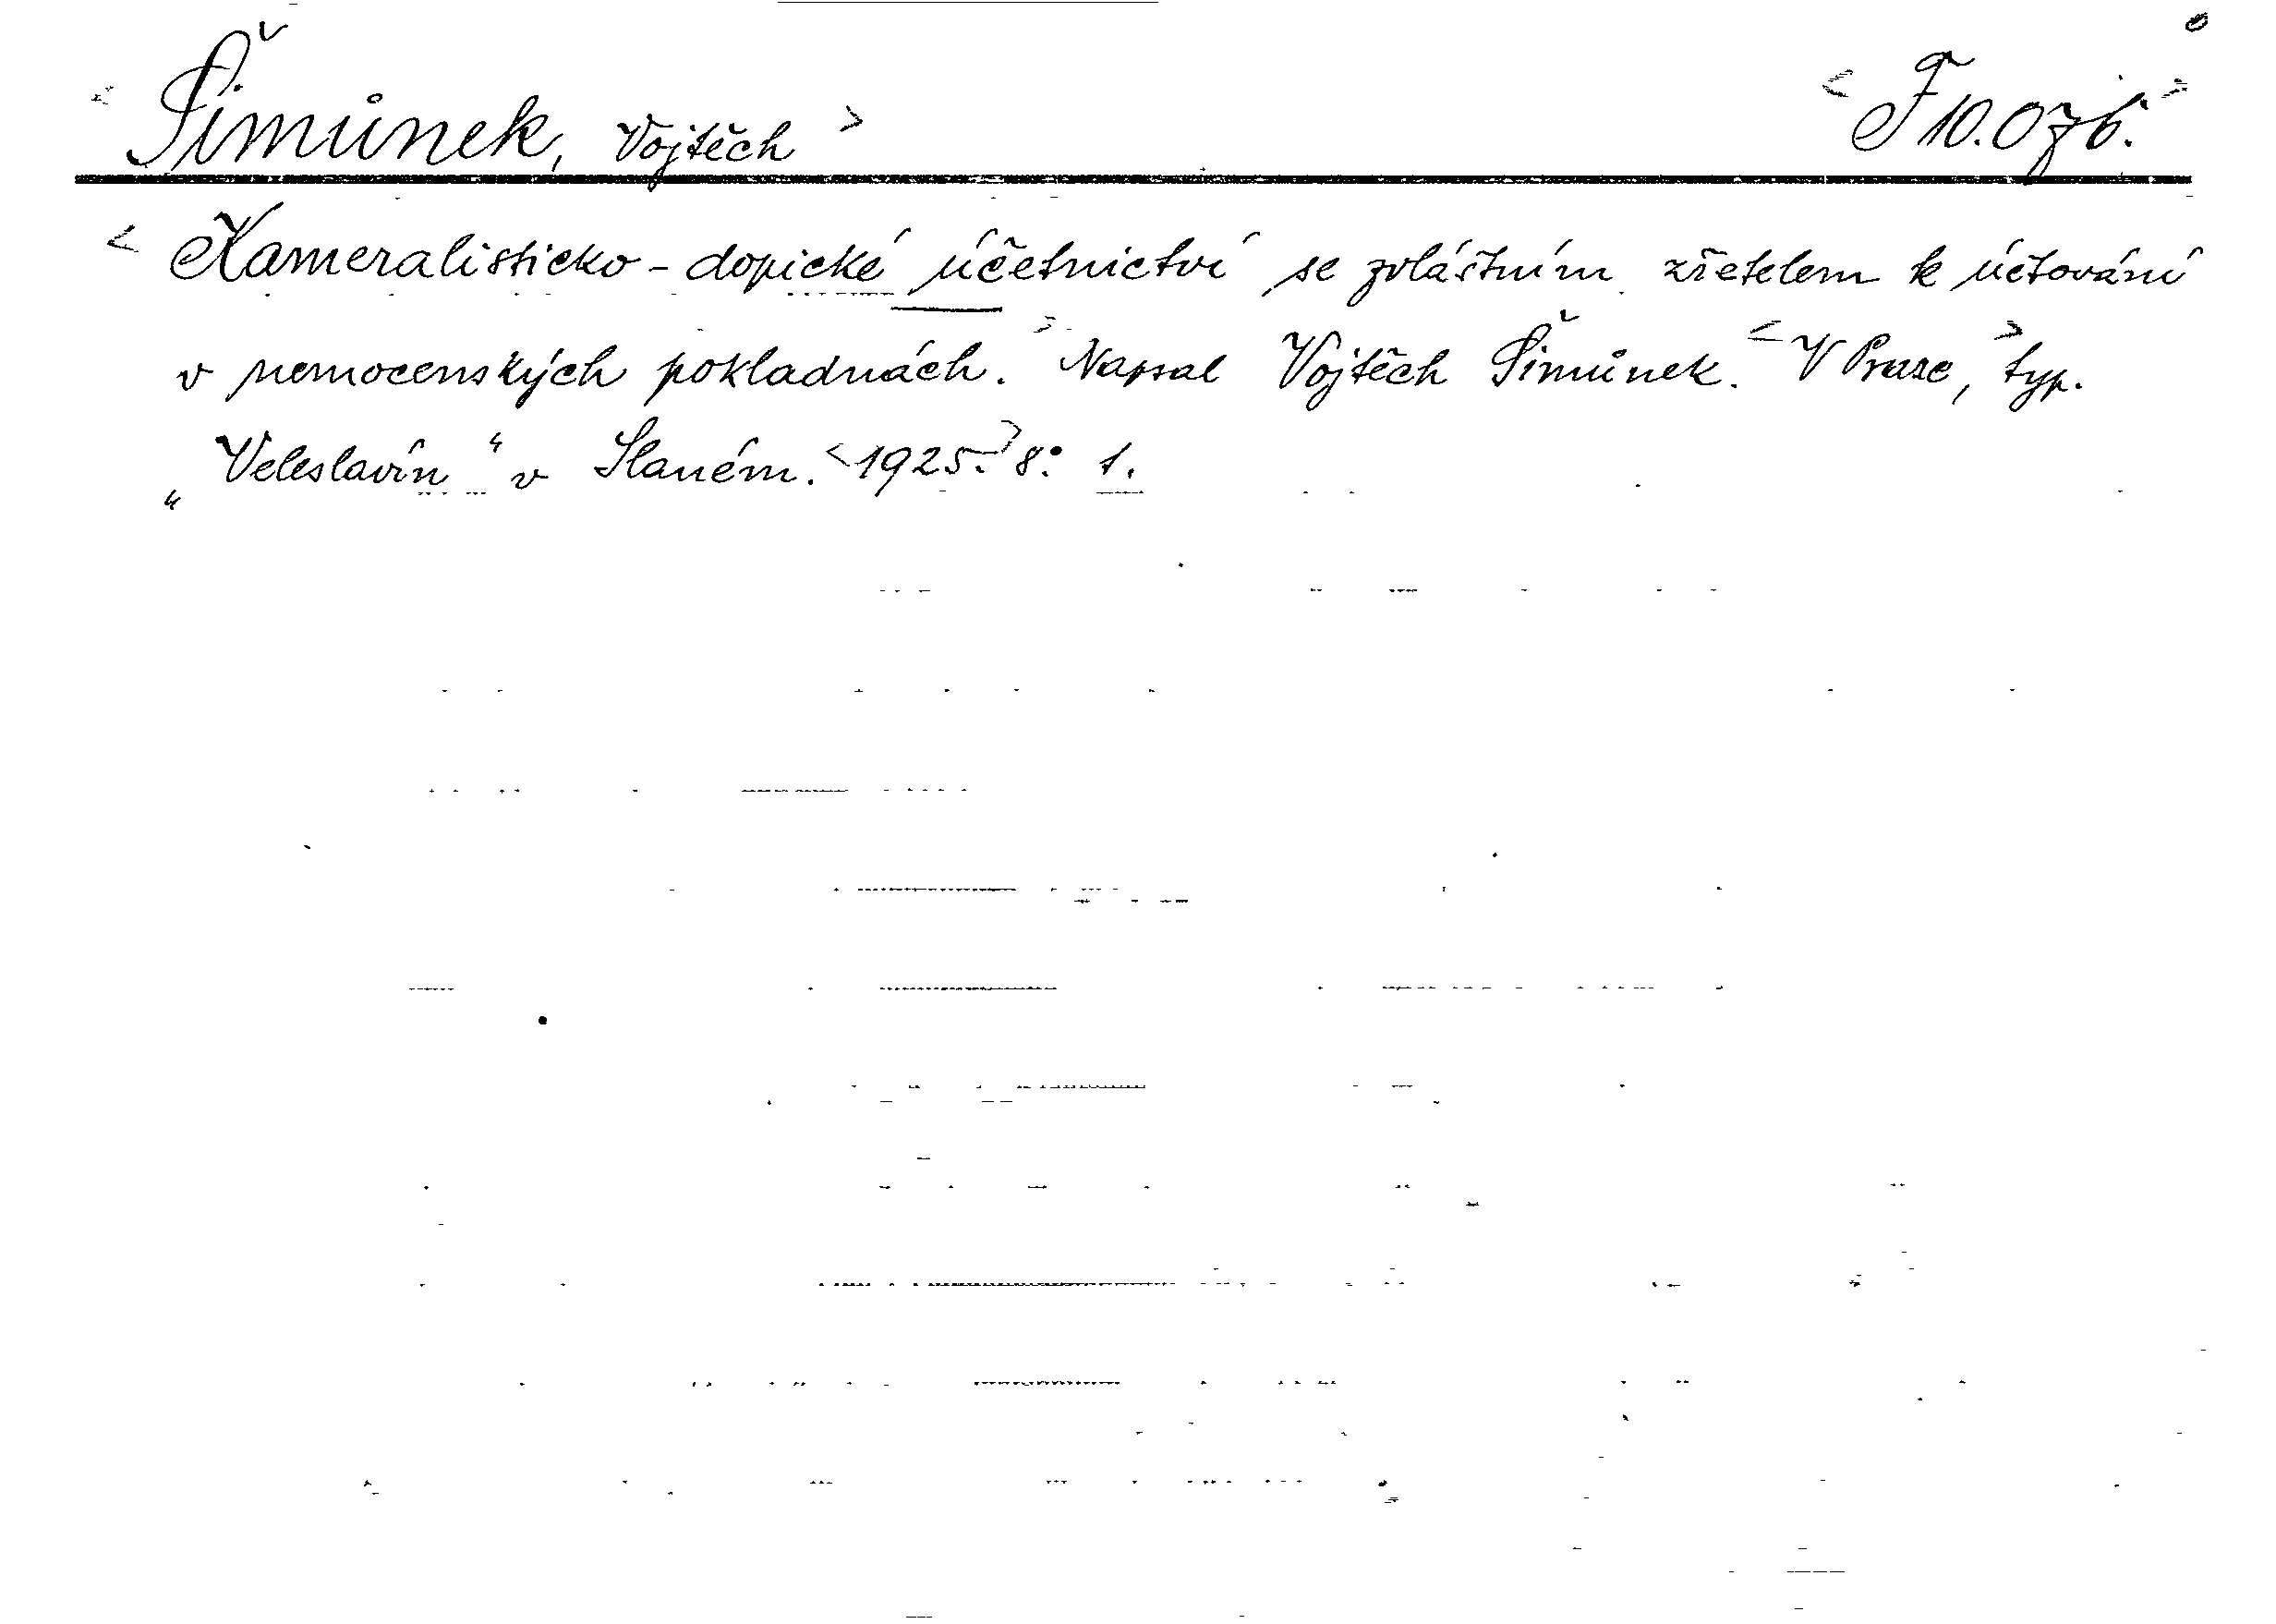 < Šimůnek, Vojtěch > < F 10.076. >
< Kameralisticko-dopické účetnictví se zvláštním zřetelem k účtování
v nemocenských pokladnách. > Napsal Vojtěch Šimůnek. < V Praze, > typ.
„Veleslavín“ v Slaném. < 1925. > 8°. 1.